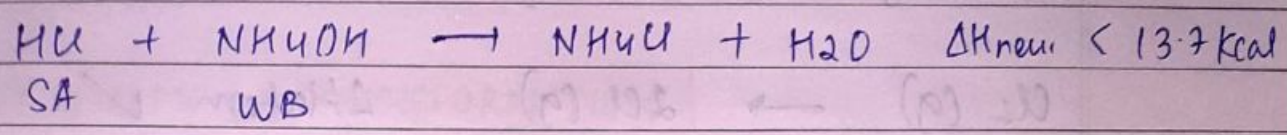 HCl + NH4OH → NH4Cl + H2O ΔHneu. < 13.7 Kcal
SA WB